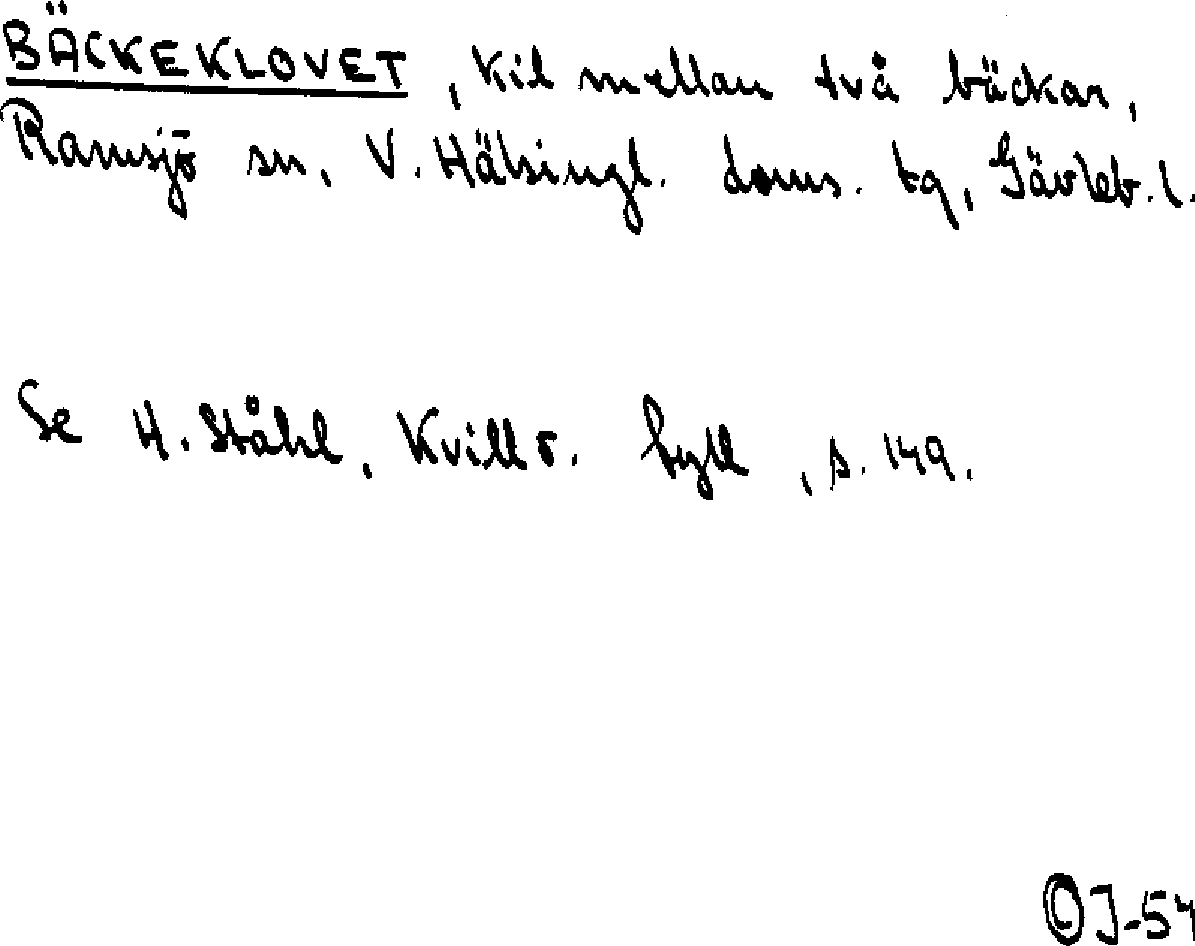 BÄCKEKLOVET, kil mellan två bäckar,
Ramsjö sn, V. Hälsingl. doms. tg, Gävleb. l.
Se H. Ståhl, Kvill o. tyll, s. 149.
OJ-54